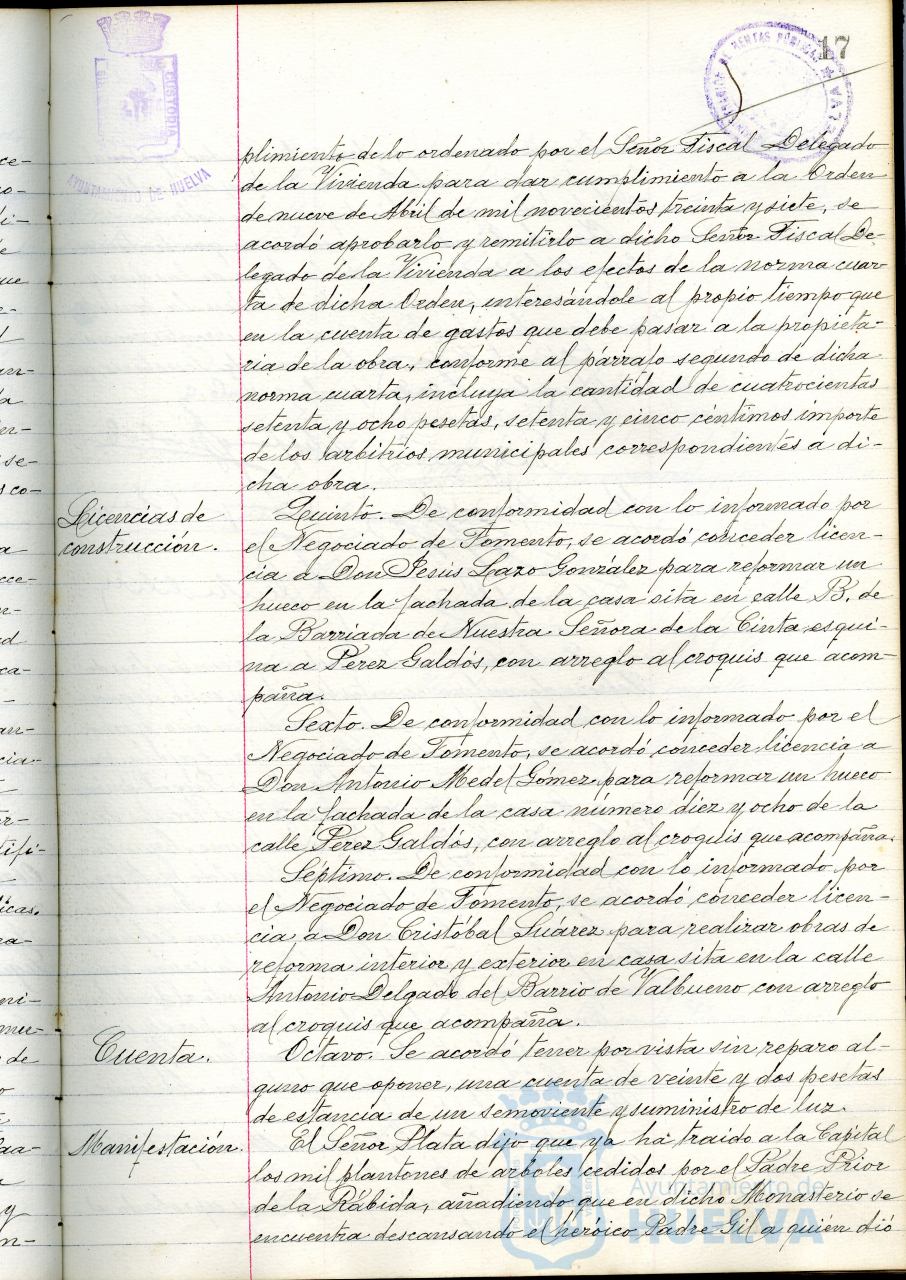 17
plimiento de lo ordenado por el Señor Fiscal Delegado
de la Vivienda para dar cumplimiento a la Orden
de nueve de Abril de mil novecientos treinta y siete, se
acordó aprobarlo y remitirlo a dicho Señor Fiscal De-
legado de la Vivienda a los efectos de la norma cuar-
ta de dicha Orden, interesándole al propio tiempo que
en la cuenta de gastos que debe pasar a la propieta-
ria de la obra, conforme al párrafo segundo de dicha
norma cuarta, incluya la cantidad de cuatrocientas
setenta y ocho pesetas, setenta y cinco céntimos importe
de los arbitrios municipales correspondientes a di-
cha obra.
Licencias de
construcción.
Quinto. De conformidad con lo informado por
el Negociado de Fomento, se acordó conceder licen-
cia a Don Jesús Lazo González para reformar un
hueco en la fachada de la casa sita en calle B. de
la Barriada de Nuestra Señora de la Cinta esqui-
na a Perez Galdós, con arreglo al croquis que acom-
paña.
Sexto. De conformidad con lo informado por el
Negociado de Fomento, se acordó conceder licencia a
Don Antonio Medel Gómez para reformar un hueco
en la fachada de la casa número diez y ocho de la
calle Perez Galdós, con arreglo al croquis que acompaña.
Séptimo. De conformidad con lo informado por
el Negociado de Fomento, se acordó conceder licen-
cia a Don Cristóbal Suárez para realizar obras de
reforma interior y exterior en casa sita en la calle
Antonio Delgado del Barrio de Valbueno con arreglo
al croquis que acompaña.
Cuenta.
Octavo. Se acordó tener por vista sin reparo al-
guno que oponer, una cuenta de veinte y dos pesetas
de estancia de un semoviente y suministro de luz.
Manifestación.
El Señor Plata dijo que ya ha traido a la Capital
los mil plantones de arboles cedidos por el Padre Prior
de la Rábida, añadiendo que en dicho Monasterio se
encuentra descansando el heróico Padre Gil a quién dió
CUSTODIA
AYUNTAMIENTO DE HUELVA
DE RENTAS PÚBLICAS
Ayuntamiento de
HUELVA